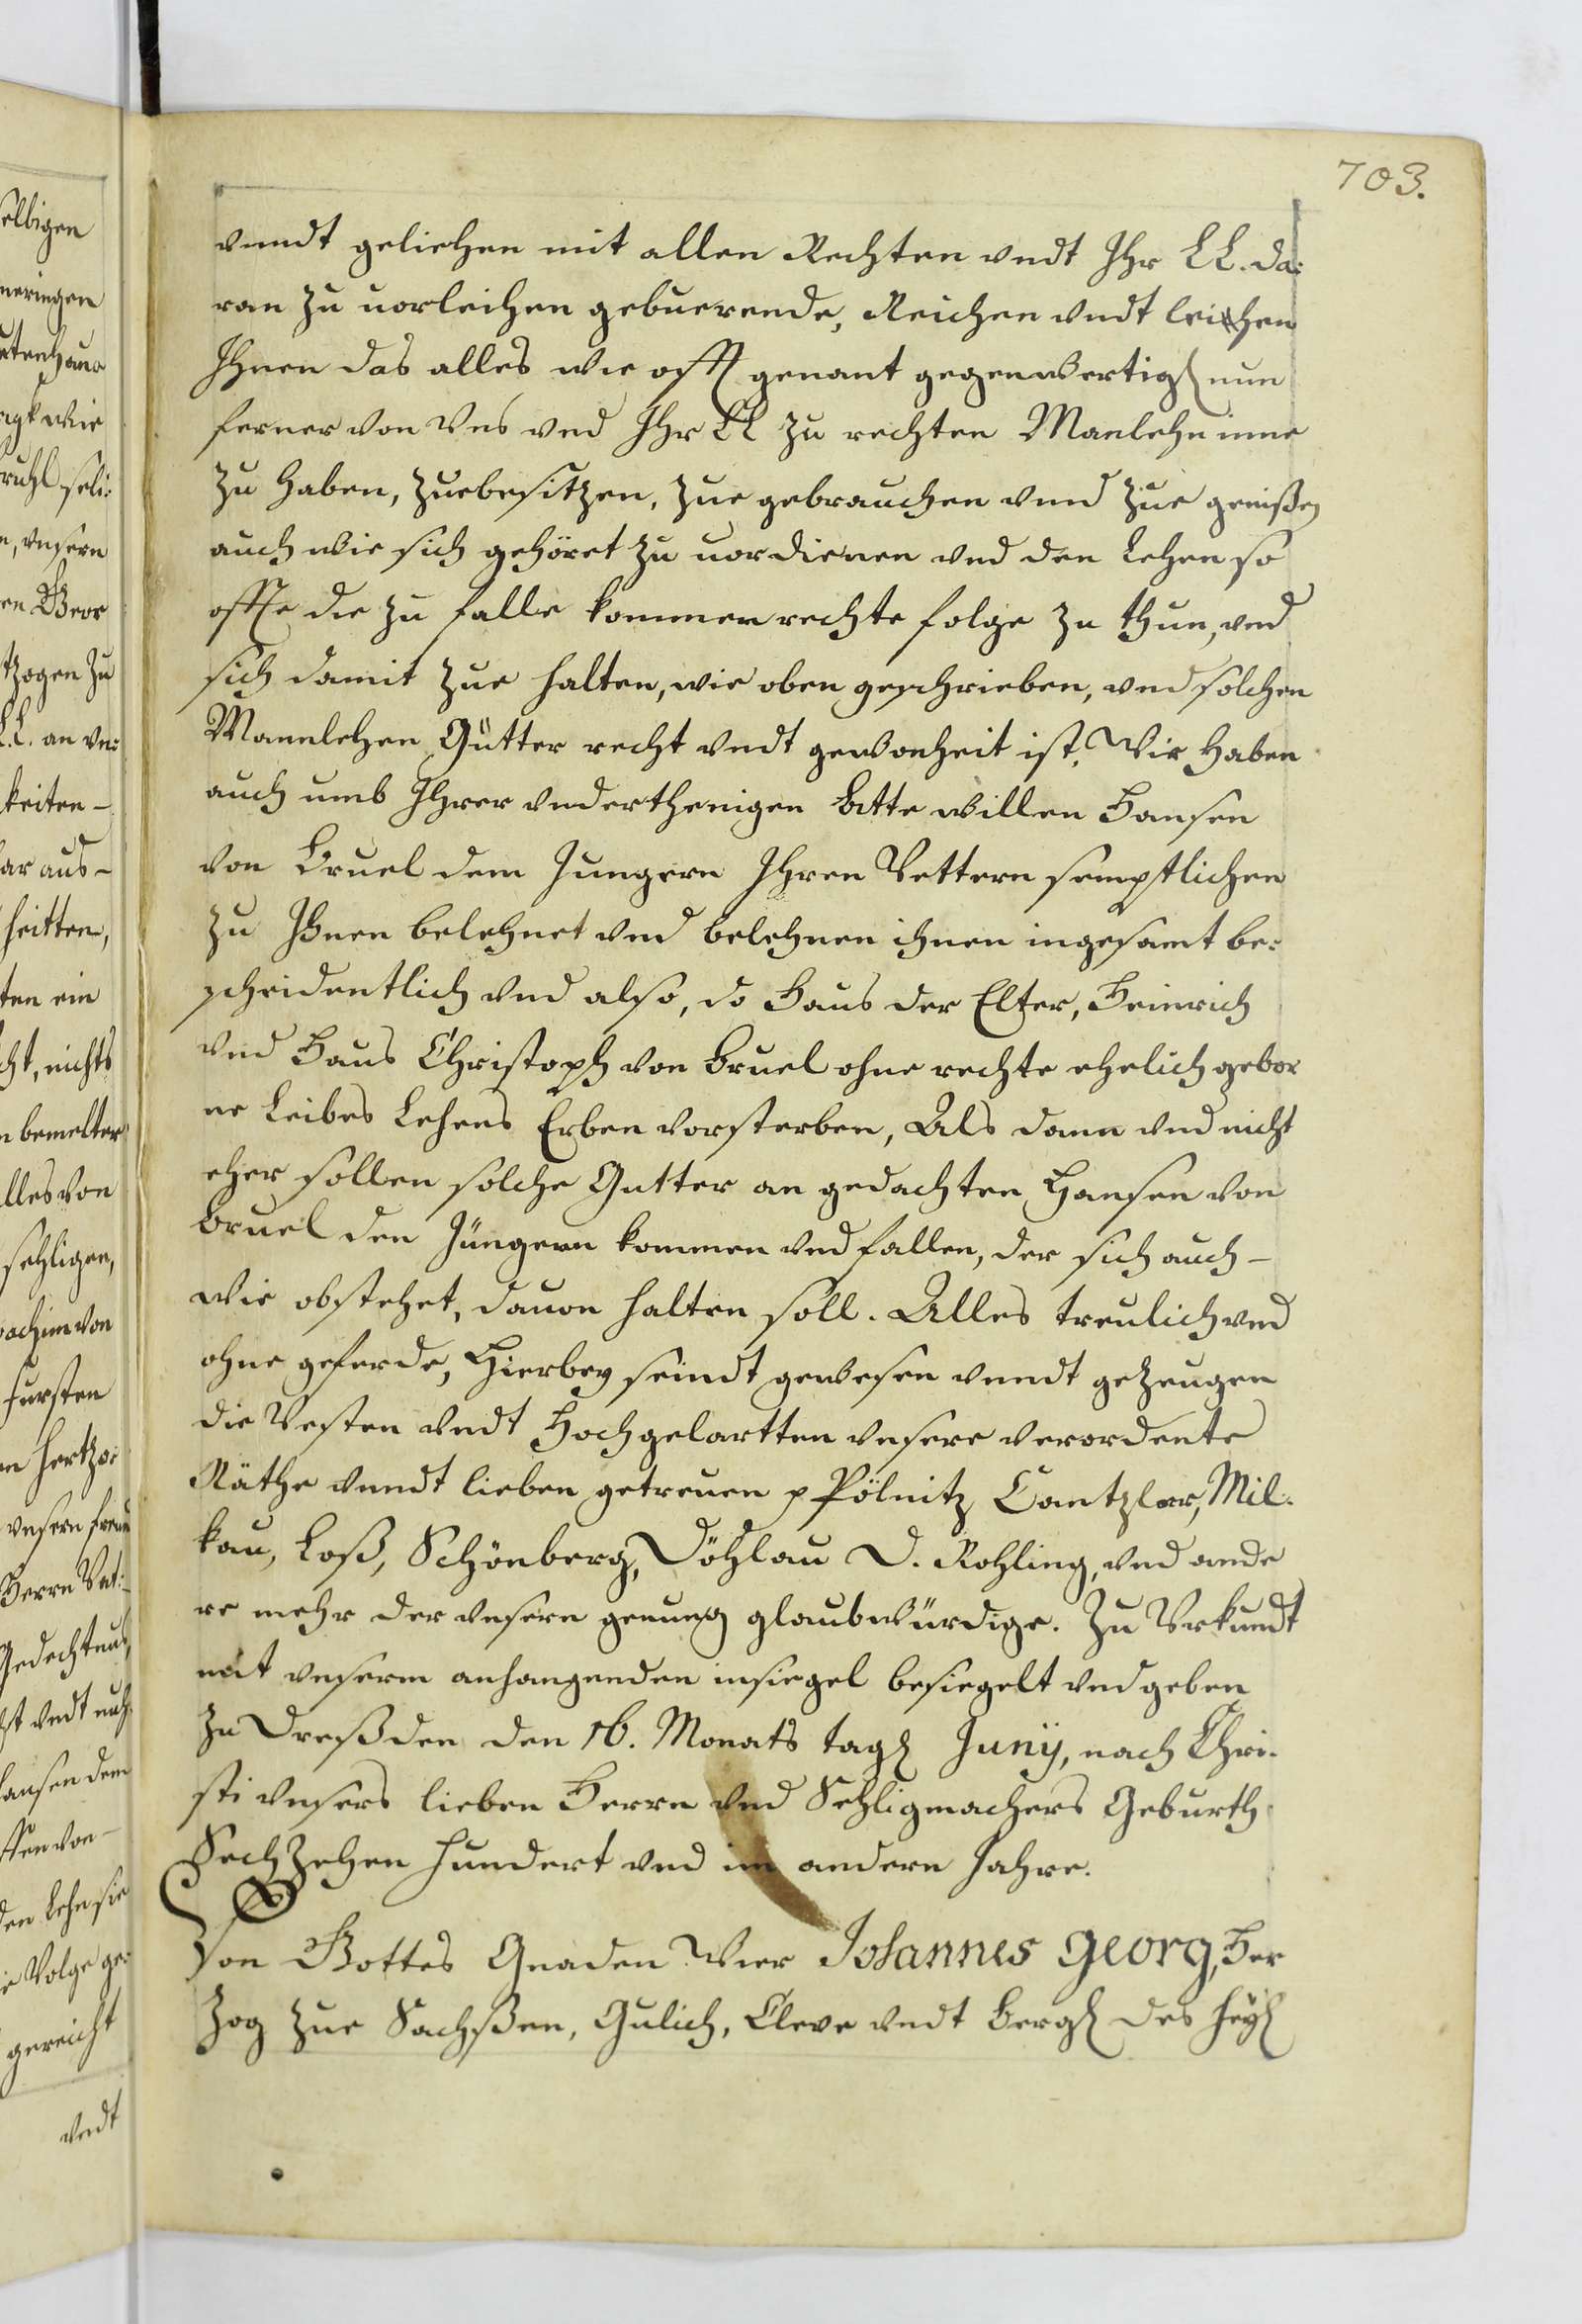 703.
vnndt geliehen mit allen Rechten vndt Ihr LL. da:
ran zu uorleihen gebuerende, Reichen vndt leihen
Ihnen das alles wie offt genant gegenwertigk nun
ferner von Vns vnd Ihr LL zu rechten Manlehn inne
zu haben, zuebesitzen, zue gebrauchen vnnd zue genißen
auch wie sich gehöret zu uordienen vnd den Lehen so
offte die zu falle kommen rechte folge zu thun, vnd
sich damit zue halten, wie oben geschrieben, vnd solchen
Mannlehen Gütter recht vndt gewonheit ist, Wir haben
auch umb Ihrer vnderthenigen bitte willen Hansen
von Bruel dem Jungern Ihren Vettern semptlichen
zu Ihnen belehnet vnd belehnen ihnen ingesamt be:
scheidentlich vnd also, do Hans der Elter, Heinrich
vnd Hans Christoph von Bruel ohne rechte ehelich gebor
ne Leibes Lehens Erben vorsterben, Als dann vnd nicht
eher sollen solche Gutter an gedachten Hansen von
Bruel den Jüngern kommen vnd fallen, der sich auch –
wie obstehet, dauon halten soll. Alles treulich vnd
ohne geferde, Hierbey seindt gewesen vnndt gezeugen
die Vesten vndt Hochgelartten vnsere verordente
Räthe vnndt lieben getreuen p Pölnitz Cantzler, Mil:
kau, Loß, Schönberg, Döhlau D. Rohling, vnd ande
re mehr der vnsern genung glaubwürdige. Zu Vrkundt
mit vnserm anhangenden insiegel besiegelt vnd geben
zu Dreßden den 16. Monats tagk Junij, nach Chri:
sti vnsers lieben Herrn vnd Sehligmachers Geburth
Sechzehen hundert vnd im andern Jahre.
Von Gottes Gnaden Wier Johannes Georg, Her
zog zue Sachßen, Gulich, Cleve vndt Bergk des heyl